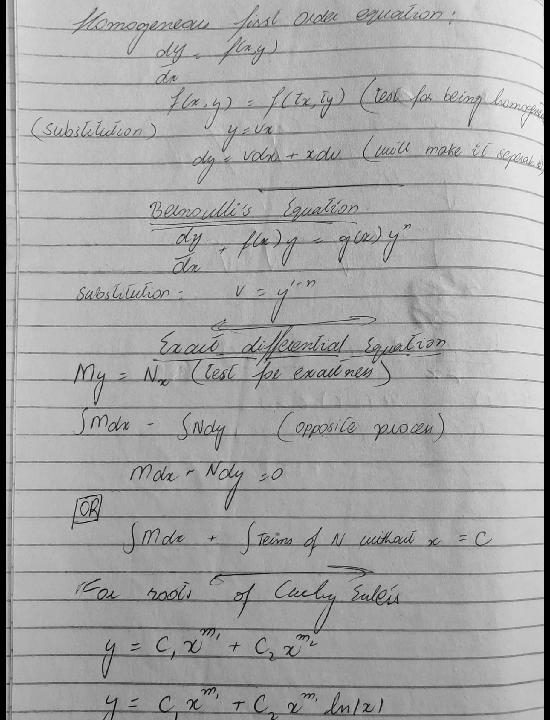 Homogeneous first order equation:
dy/dx = f(x,y)
f(x,y) = f(tx,ty) (test for being homogene
(substitution) y = vx
dy = vdx + xdv (will make it seperab
Bernoulli's Equation
dy/dx + f(x)y = g(x)yⁿ
substitution: v = y¹⁻ⁿ
Exact differential Equation
My = Nx (test for exactness)
∫Mdx - ∫Ndy (opposite process)
Mdx - Ndy = 0
OR
∫Mdx + ∫Terms of N without x = C
For roots of Cauchy Euler's
y = C₁x^m₁ + C₂x^m₂
y = C₁x^m₁ + C₂x^m₁ ln|x|